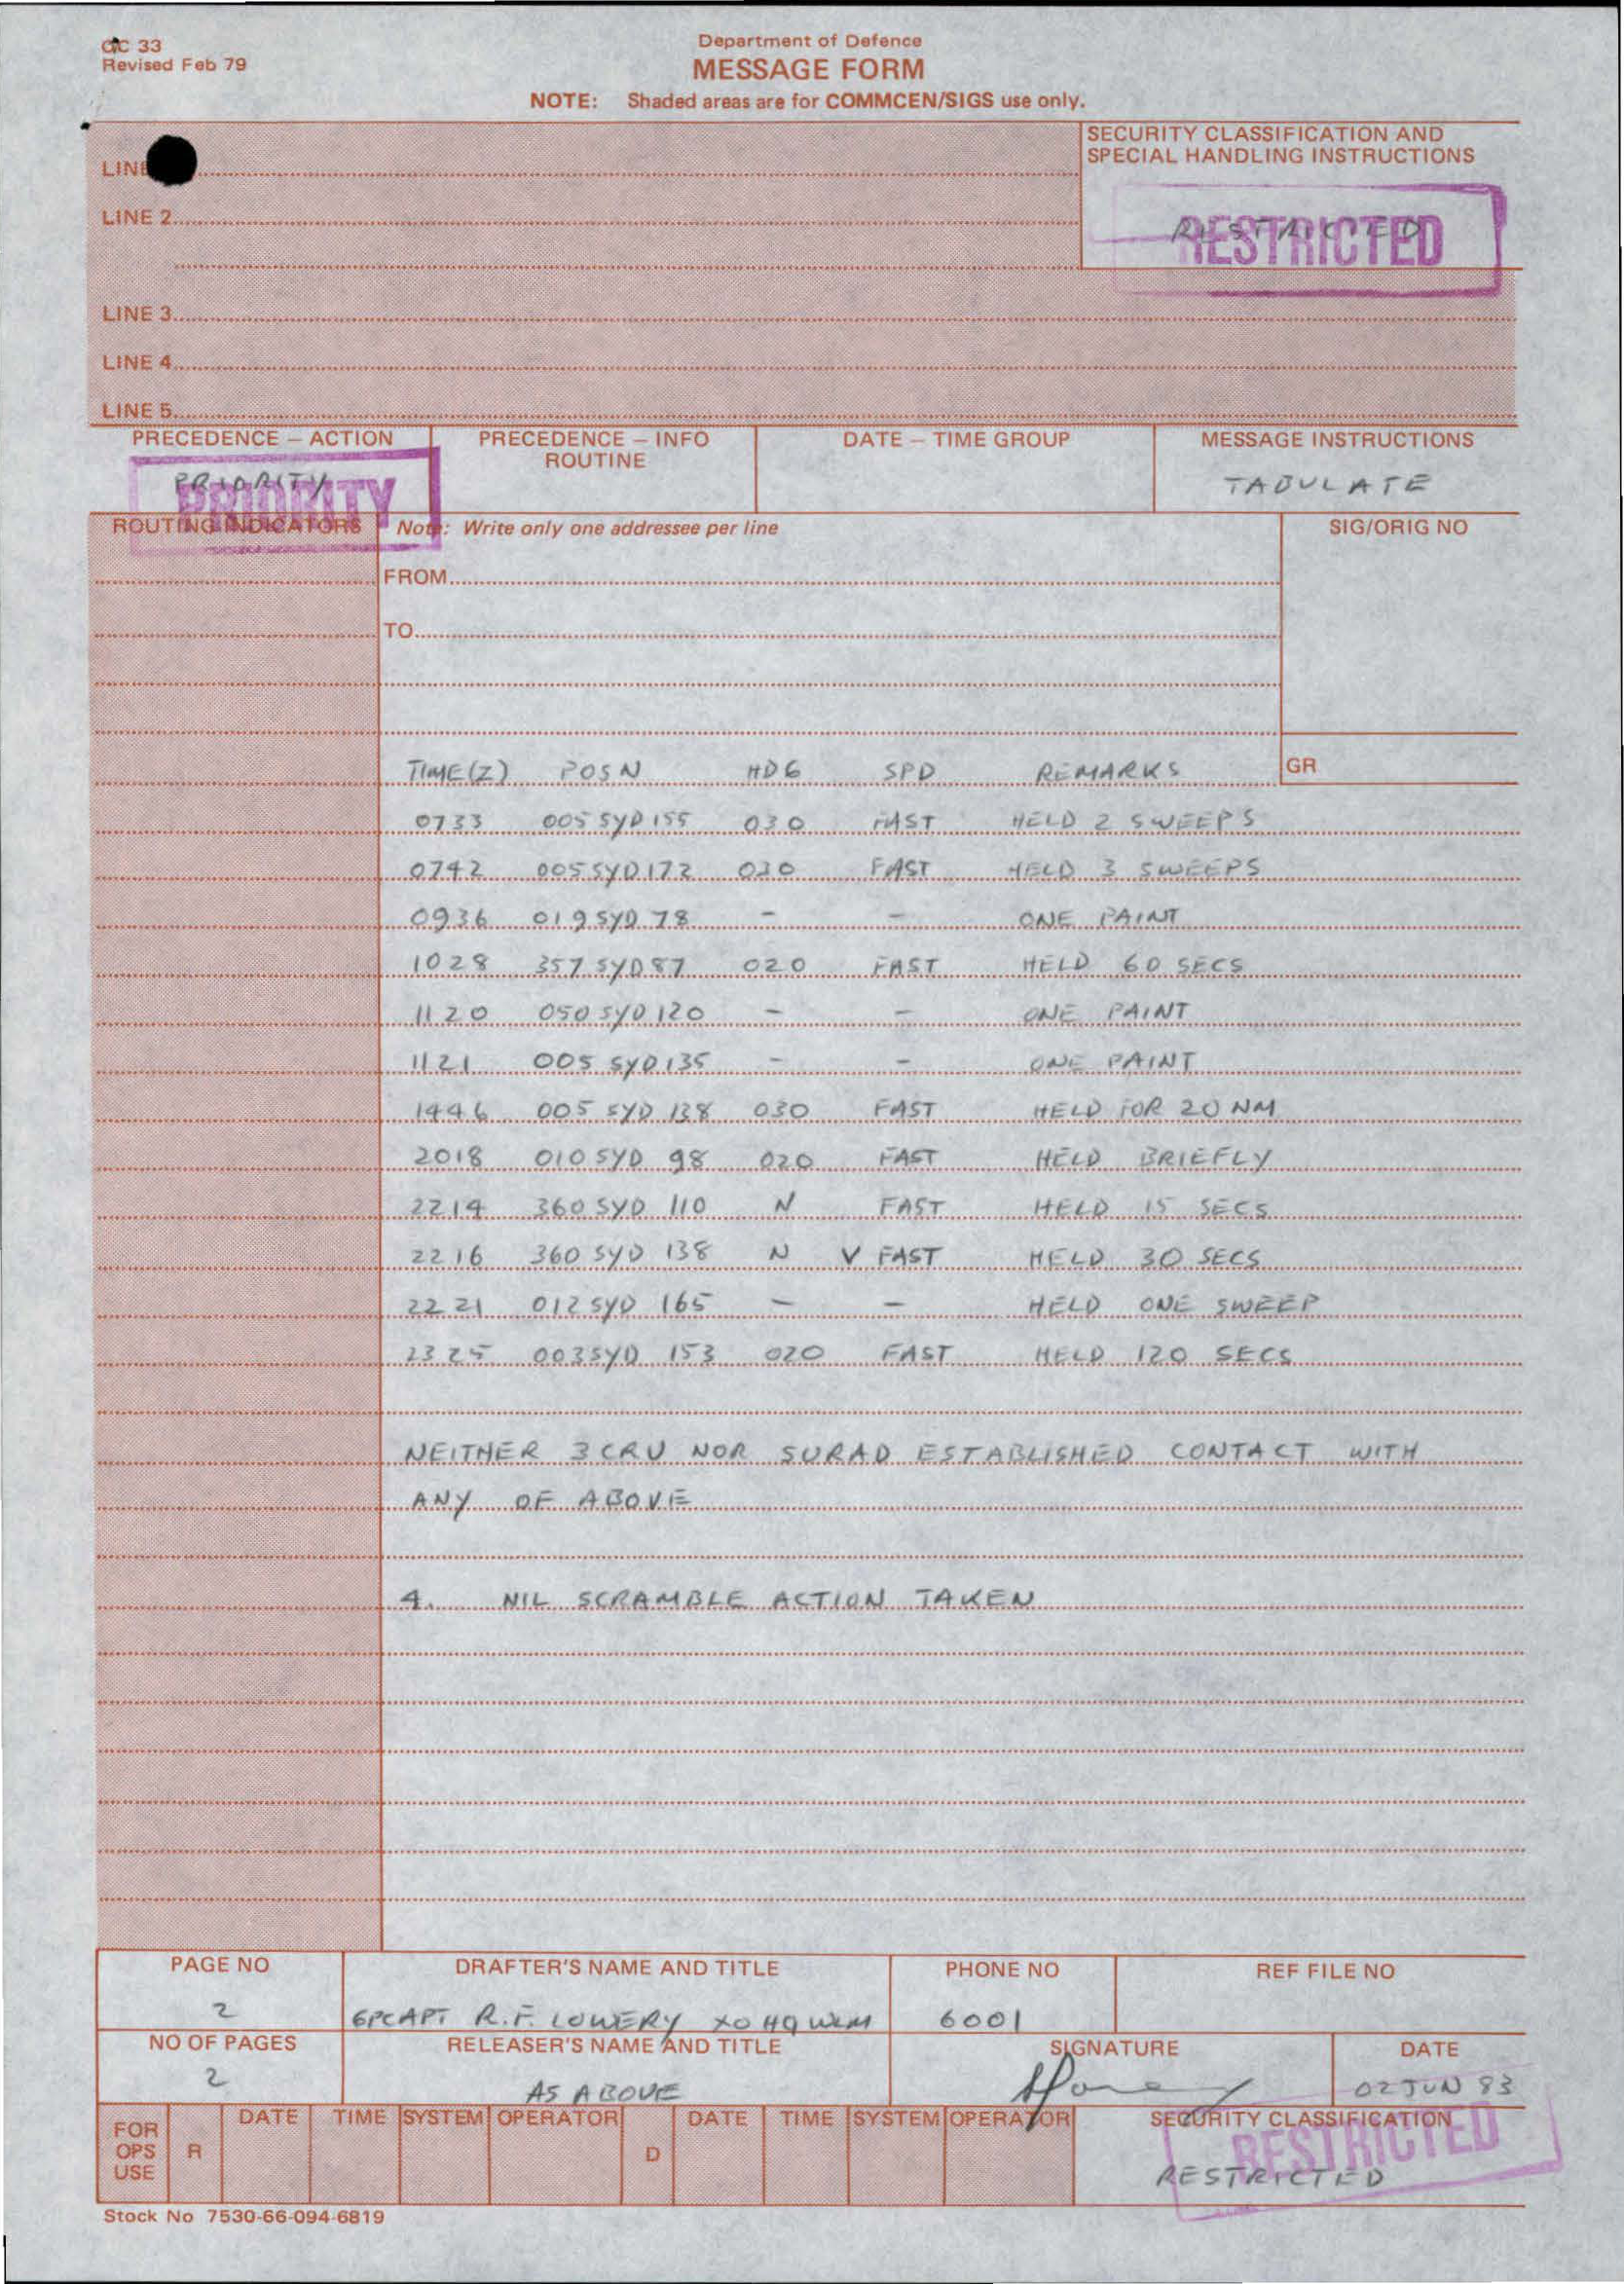 OC 33
Revised Feb 79
Department of Defence
MESSAGE FORM
NOTE: Shaded areas are for COMMCEN/SIGS use only.
SECURITY CLASSIFICATION AND
SPECIAL HANDLING INSTRUCTIONS
LINE
RESTRICTED
RESTRICTED
LINE 2
LINE 3
LINE 4
LINE 5
PRECEDENCE – ACTION PRECEDENCE – INFO DATE – TIME GROUP MESSAGE INSTRUCTIONS
ROUTINE
PRIORITY TABULATE
PRIORITY
ROUTING INDICATORS Note: Write only one addressee per line SIG/ORIG NO
FROM
TO
TIME(Z) POSN HDG SPD REMARKS GR
0733 005 SYD 155 030 FAST HELD 2 SWEEPS
0742 005 SYD 172 030 FAST HELD 3 SWEEPS
0936 019 SYD 78 - - ONE PAINT
1028 357 SYD 87 020 FAST HELD 60 SECS
1120 050 SYD 120 - - ONE PAINT
1121 005 SYD 135 - - ONE PAINT
1446 005 SYD 138 030 FAST HELD FOR 20 NM
2018 010 SYD 98 020 FAST HELD BRIEFLY
2214 360 SYD 110 N FAST HELD 15 SECS
2216 360 SYD 138 N V FAST HELD 30 SECS
2221 012 SYD 165 - - HELD ONE SWEEP
2325 003 SYD 153 020 FAST HELD 120 SECS
NEITHER 3CRU NOR SURAD ESTABLISHED CONTACT WITH
ANY OF ABOVE
4. NIL SCRAMBLE ACTION TAKEN
PAGE NO DRAFTER'S NAME AND TITLE PHONE NO REF FILE NO
2 GPCAPT R.F. LOWERY XO HQ WLM 6001
NO OF PAGES RELEASER'S NAME AND TITLE SIGNATURE DATE
2 AS ABOVE 02 JUN 83
FOR OPS USE R DATE TIME SYSTEM OPERATOR D DATE TIME SYSTEM OPERATOR SECURITY CLASSIFICATION
RESTRICTED
RESTRICTED
Stock No 7530-66-094-6819